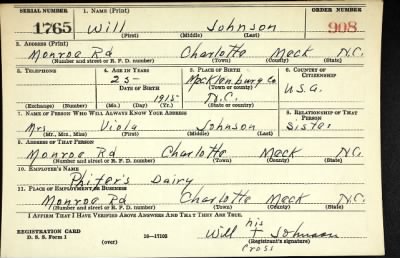 SERIAL NUMBER 1. NAME (Print) ORDER NUMBER
1765 Will Johnson 908
(First) (Middle) (Last)
2. ADDRESS (Print)
Monroe Rd Charlotte Meck N.C.
(Number and street or R. F. D. number) (Town) (County) (State)
3. TELEPHONE 4. AGE IN YEARS 5. PLACE OF BIRTH 6. COUNTRY OF CITIZENSHIP
25 Mecklenburg Co
DATE OF BIRTH (Town) (County)
1915 N.C. U.S.A.
(Exchange) (Number) (Mo.) (Day) (Yr.) (State or country)
7. NAME OF PERSON WHO WILL ALWAYS KNOW YOUR ADDRESS 8. RELATIONSHIP OF THAT PERSON
Mrs Viola Johnson Sister
(Mr., Mrs., Miss) (First) (Middle) (Last)
9. ADDRESS OF THAT PERSON
Monroe Rd Charlotte Meck N.C.
(Number and street or R. F. D. number) (Town) (County) (State)
10. EMPLOYER'S NAME
Phifer's Dairy
11. PLACE OF EMPLOYMENT OR BUSINESS
Monroe Rd Charlotte Meck N.C.
(Number and street or R. F. D. number) (Town) (County) (State)
I AFFIRM THAT I HAVE VERIFIED ABOVE ANSWERS AND THAT THEY ARE TRUE.
his
REGISTRATION CARD Will + Johnson
D. S. S. Form 1 (over) 16—17105 (Registrant's signature)
cross